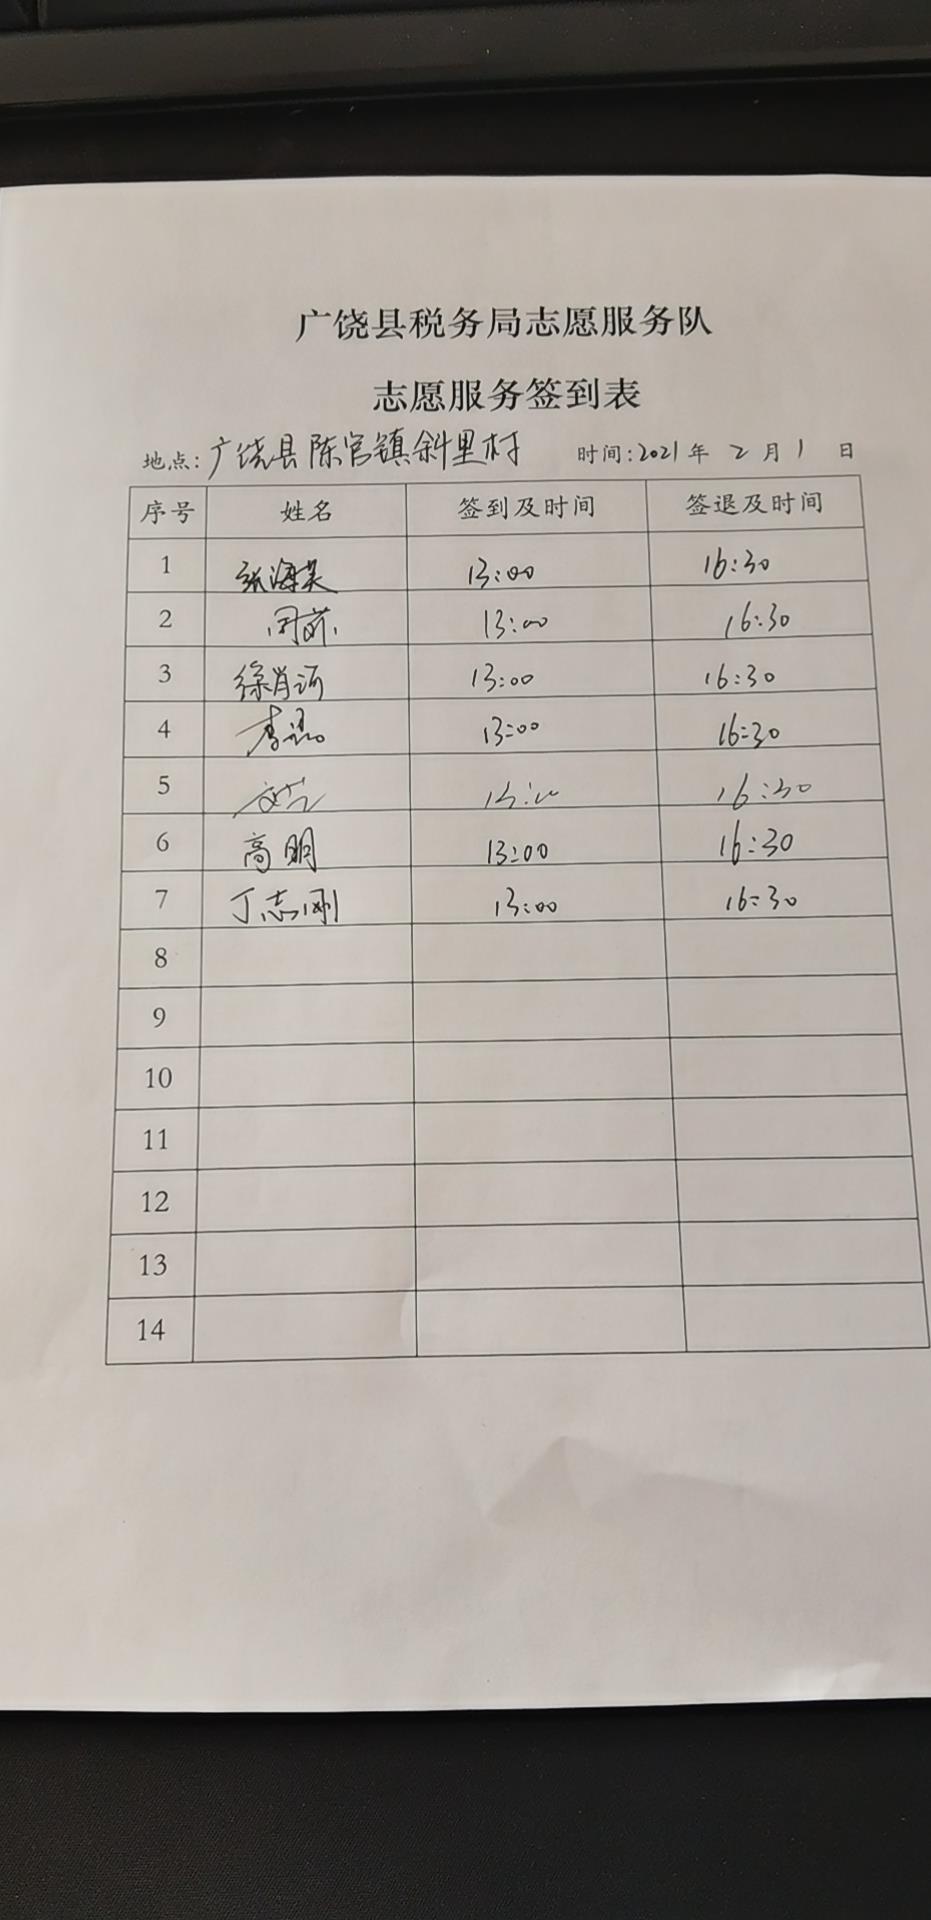 广饶县税务局志愿服务队
志愿服务签到表
地点:广饶县陈官镇斜里村 时间:2021年 2 月 1 日
序号 姓名 签到及时间 签退及时间
1 张海英 13:00 16:30
2 13:00 16:30
3 徐肖河 13:00 16:30
4 李磊 13:00 16:30
5 13:00 16:30
6 高明 13:00 16:30
7 丁志刚 13:00 16:30
8
9
10
11
12
13
14